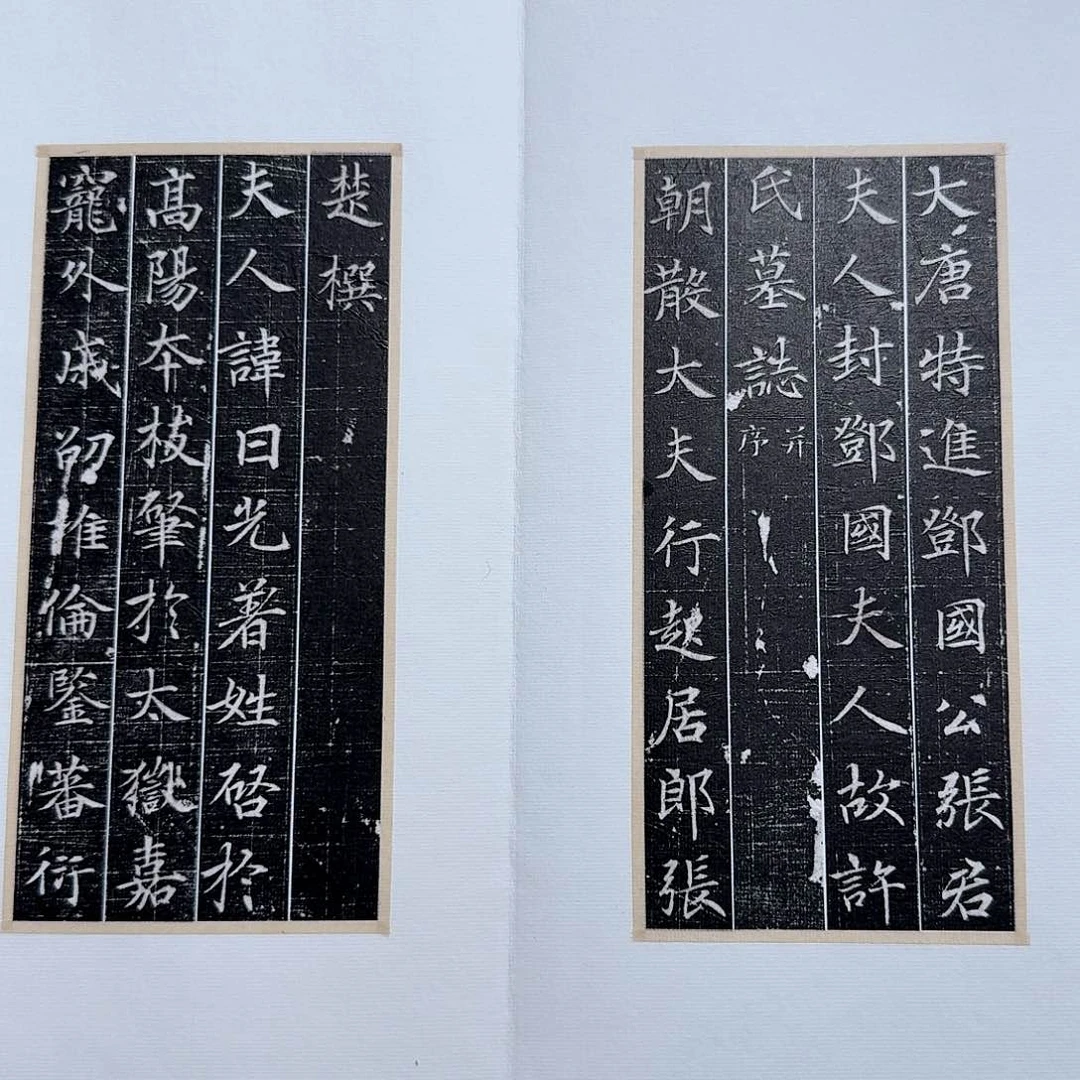 大唐特進鄧國公張君
夫人封鄧國夫人故許
氏墓誌并序
朝散大夫行起居郎張
楚撰
夫人諱日光著姓啓於
髙陽夲枝肇於太嶽嘉
寵外戚劭推倫鑒蕃衍